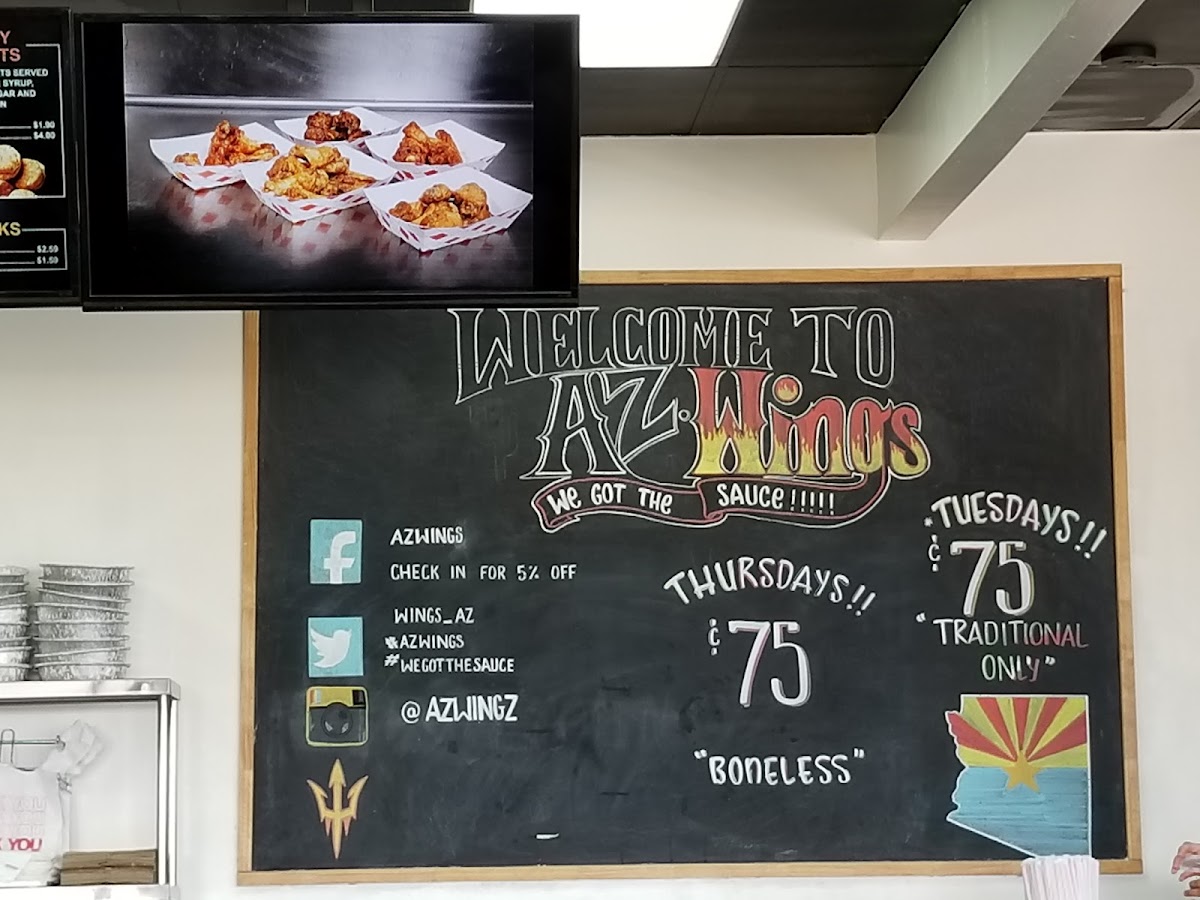 TS SERVED
SYRUP,
AND
$1.90
$4.80
KS
$2.59
$1.59
WELCOME TO
AZ.Wings
WE GOT THE SAUCE!!!!!
AZWINGS
CHECK IN FOR 5% OFF
WINGS_AZ
#AZWINGS
#WEGOTTHESAUCE
@AZWINGZ
THURSDAYS!!
¢75
"BONELESS"
*TUESDAYS!!
¢75
"TRADITIONAL
ONLY"
YOU